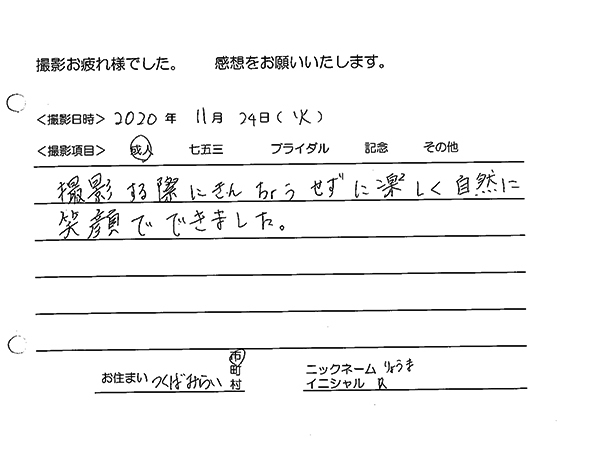 撮影お疲れ様でした。 感想をお願いいたします。
<撮影日時> 2020 年 11月 24日(火)
<撮影項目> 成人 七五三 ブライダル 記念 その他
撮影する際にきんちょうせずに楽しく自然に
笑顔でできました。
お住まい つくばみらい 市 町 村
ニックネーム りょうま
イニシャル R